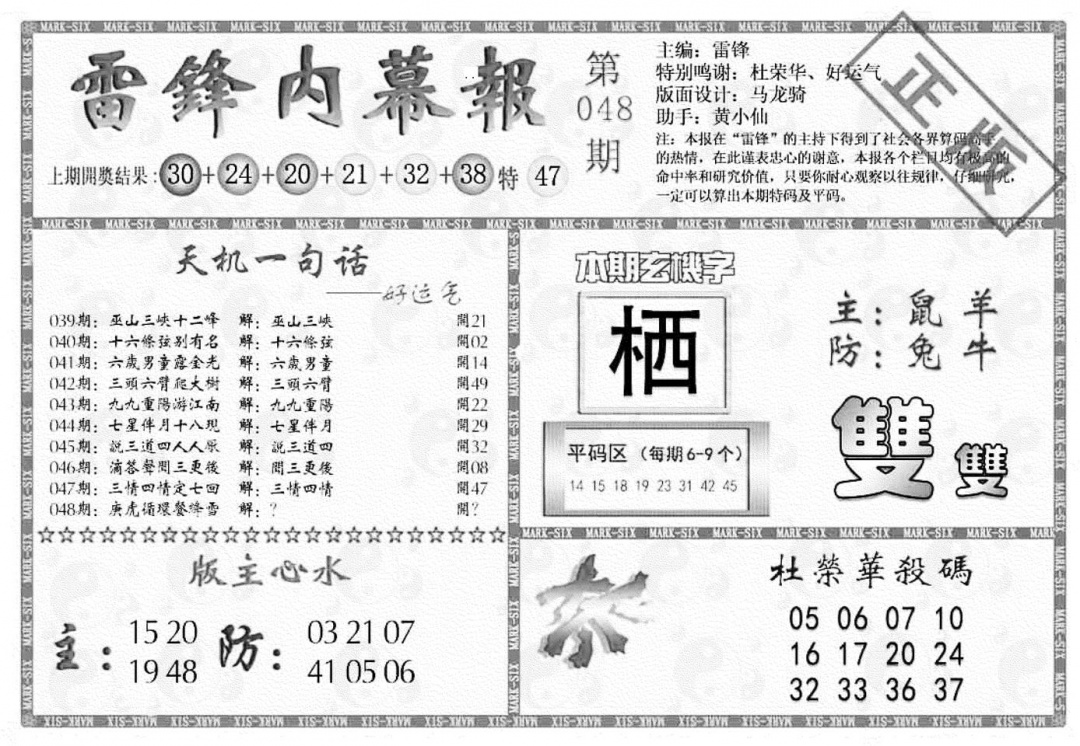 雷鋒内幕報
第048期
上期開獎结果:30+24+20+21+32+38特47
主编:雷锋
特别鸣谢:杜荣华、好运气
版面设计:马龙骑
助手:黄小仙
注:本报在“雷锋”的主持下得到了社会各界算码高手
的热情,在此谨表忠心的谢意,本报各个栏目均有极高的
命中率和研究价值,只要你耐心观察以往规律,仔细研究,
一定可以算出本期特码及平码。
正版
天机一句话
——好运气
039期:巫山三峽十二峰 解:巫山三峽 開21
040期:十六條弦别有名 解:十六條弦 開02
041期:六歲男童露金光 解:六歲男童 開14
042期:三頭六臂爬大樹 解:三頭六臂 開49
043期:九九重陽游江南 解:九九重陽 開22
044期:七星伴月十八現 解:七星伴月 開29
045期:説三道四人人厭 解:説三道四 開32
046期:滴答聲聞三更後 解:聞三更後 開08
047期:三情四情定七回 解:三情四情 開47
048期:庚虎循環餐降雪 解:? 開?
☆☆☆☆☆☆☆☆☆☆☆☆☆☆☆☆☆☆☆☆☆☆☆
本期玄機字
栖
主:鼠 羊
防:兔 牛
雙 雙
平码区(每期6-9个)
14 15 18 19 23 31 42 45
版主心水
主:15 20
19 48
防:03 21 07
41 05 06
杀
杜榮華殺碼
05 06 07 10
16 17 20 24
32 33 36 37
MARK-SIX